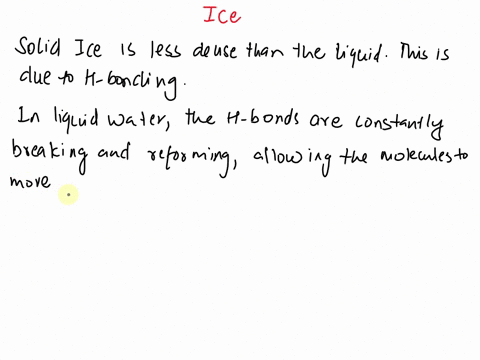 Ice
Solid Ice is less dense than the liquid. This is
due to H-bonding.
In liquid water, the H-bonds are constantly
breaking and reforming, allowing the molecules to
move